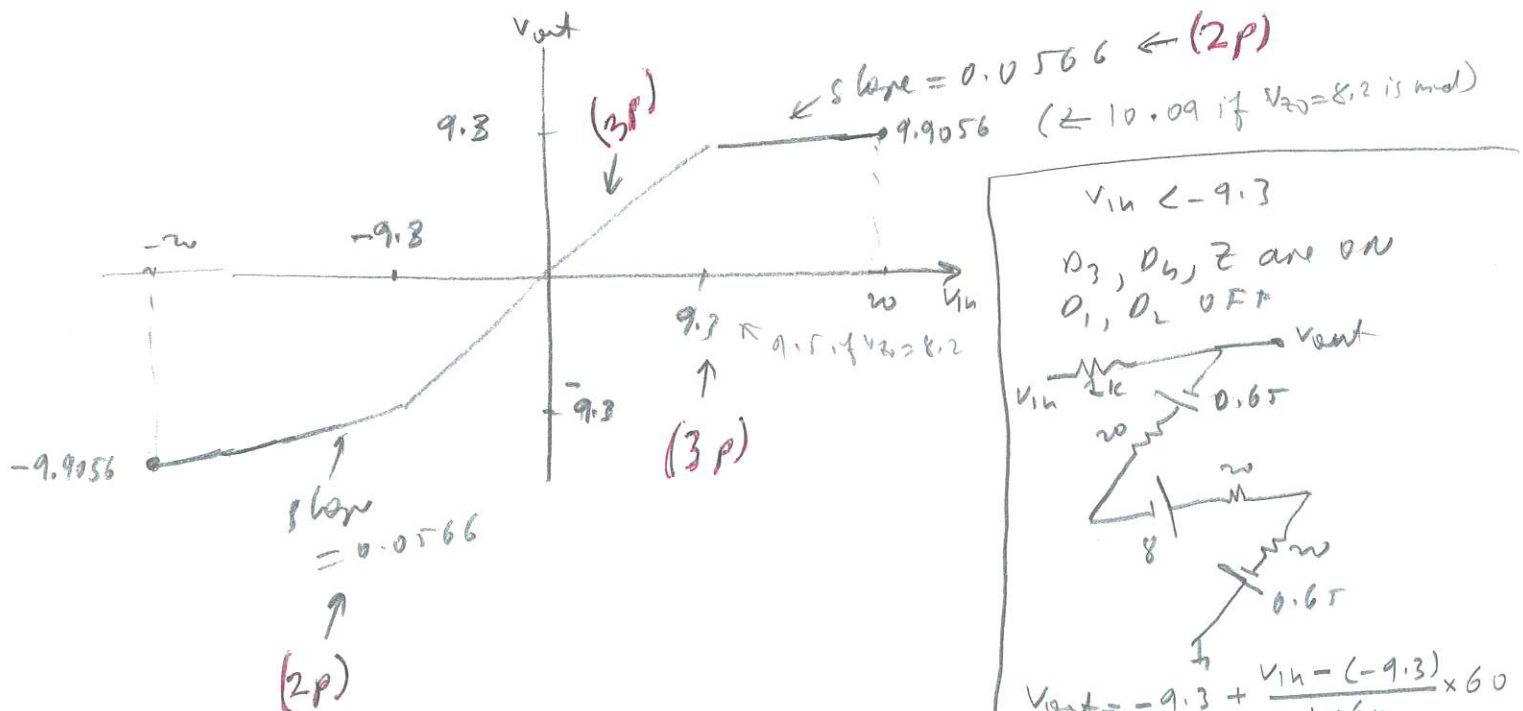 Vout
slope = 0.0566 ← (2p)
9.3
(3p)
9.9056 (← 10.09 if VZ0=8.2 is used)
-20
-9.3
9.3
20
Vin
9.5 if VZ0=8.2
-9.3
(3p)
-9.9056
slope
= 0.0566
(2p)
Vin < -9.3
D3, D4, Z are ON
D1, D2 OFF
Vout
Vin
1k
0.65
20
20
8
20
0.65
Vout = -9.3 + Vin - (-9.3) × 60